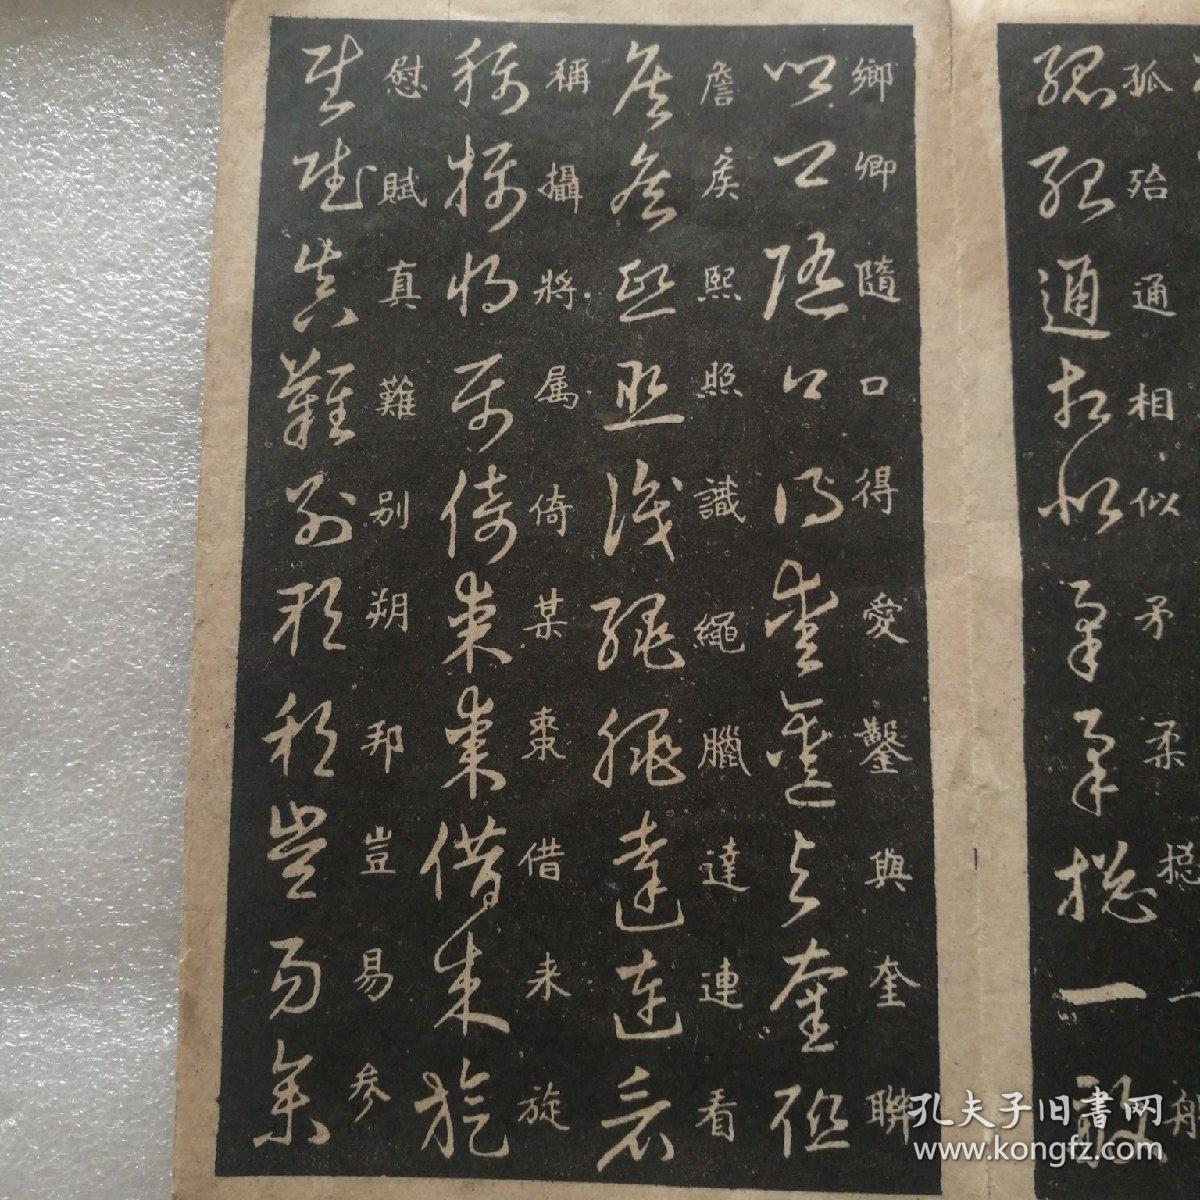 孤殆通相似矛柔揔一般
鄉卿隨口得愛鑿與奎聯
詹矦熙照識繩臘達連看
稱攝將属倚某棗借来旋
慰賦真難别朔邦豈易参
孔夫子旧书网
www.kongfz.com